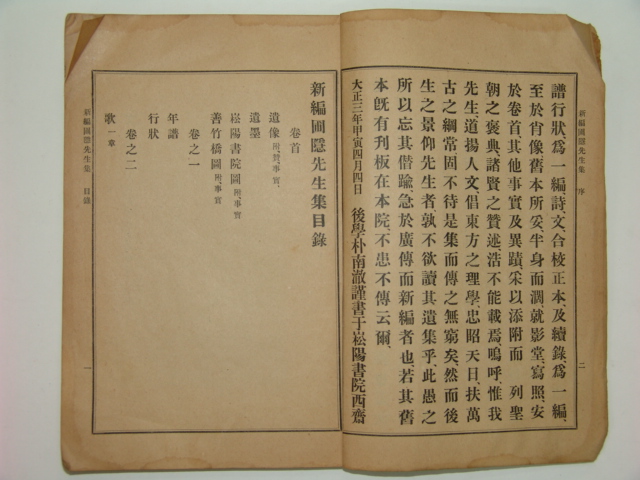 新編圃隱先生集 序 二
譜行狀爲一編、詩文合校正本、及續錄、爲一編、
至於肖像舊本所妥、半身而濶、就影堂、寫照、安
於卷首、其他事實及異蹟、采以添附而 列聖
朝之褒典諸賢之贊述、浩不能載焉、嗚呼、惟我
先生、道揚人文、倡東方之理學、忠昭天日、扶萬
古之綱常、固不待是集而傳之無窮矣、然而後
生之景仰先生者、孰不欲讀其遺集乎、此愚之
所以忘其僭踰、急於廣傳而新編者也、若其舊
本旣有刋板在本院、不患不傳云爾、
大正三年甲寅四月四日 後學朴南澈謹書于崧陽書院西齋
新編圃隱先生集目錄
卷首
遺像 附、贊、事實、
遺墨
崧陽書院圖 附、事實
善竹橋圖 附、事實
卷之一
年譜
行狀
卷之二
歌 一章
新編圃隱先生集 目錄 一